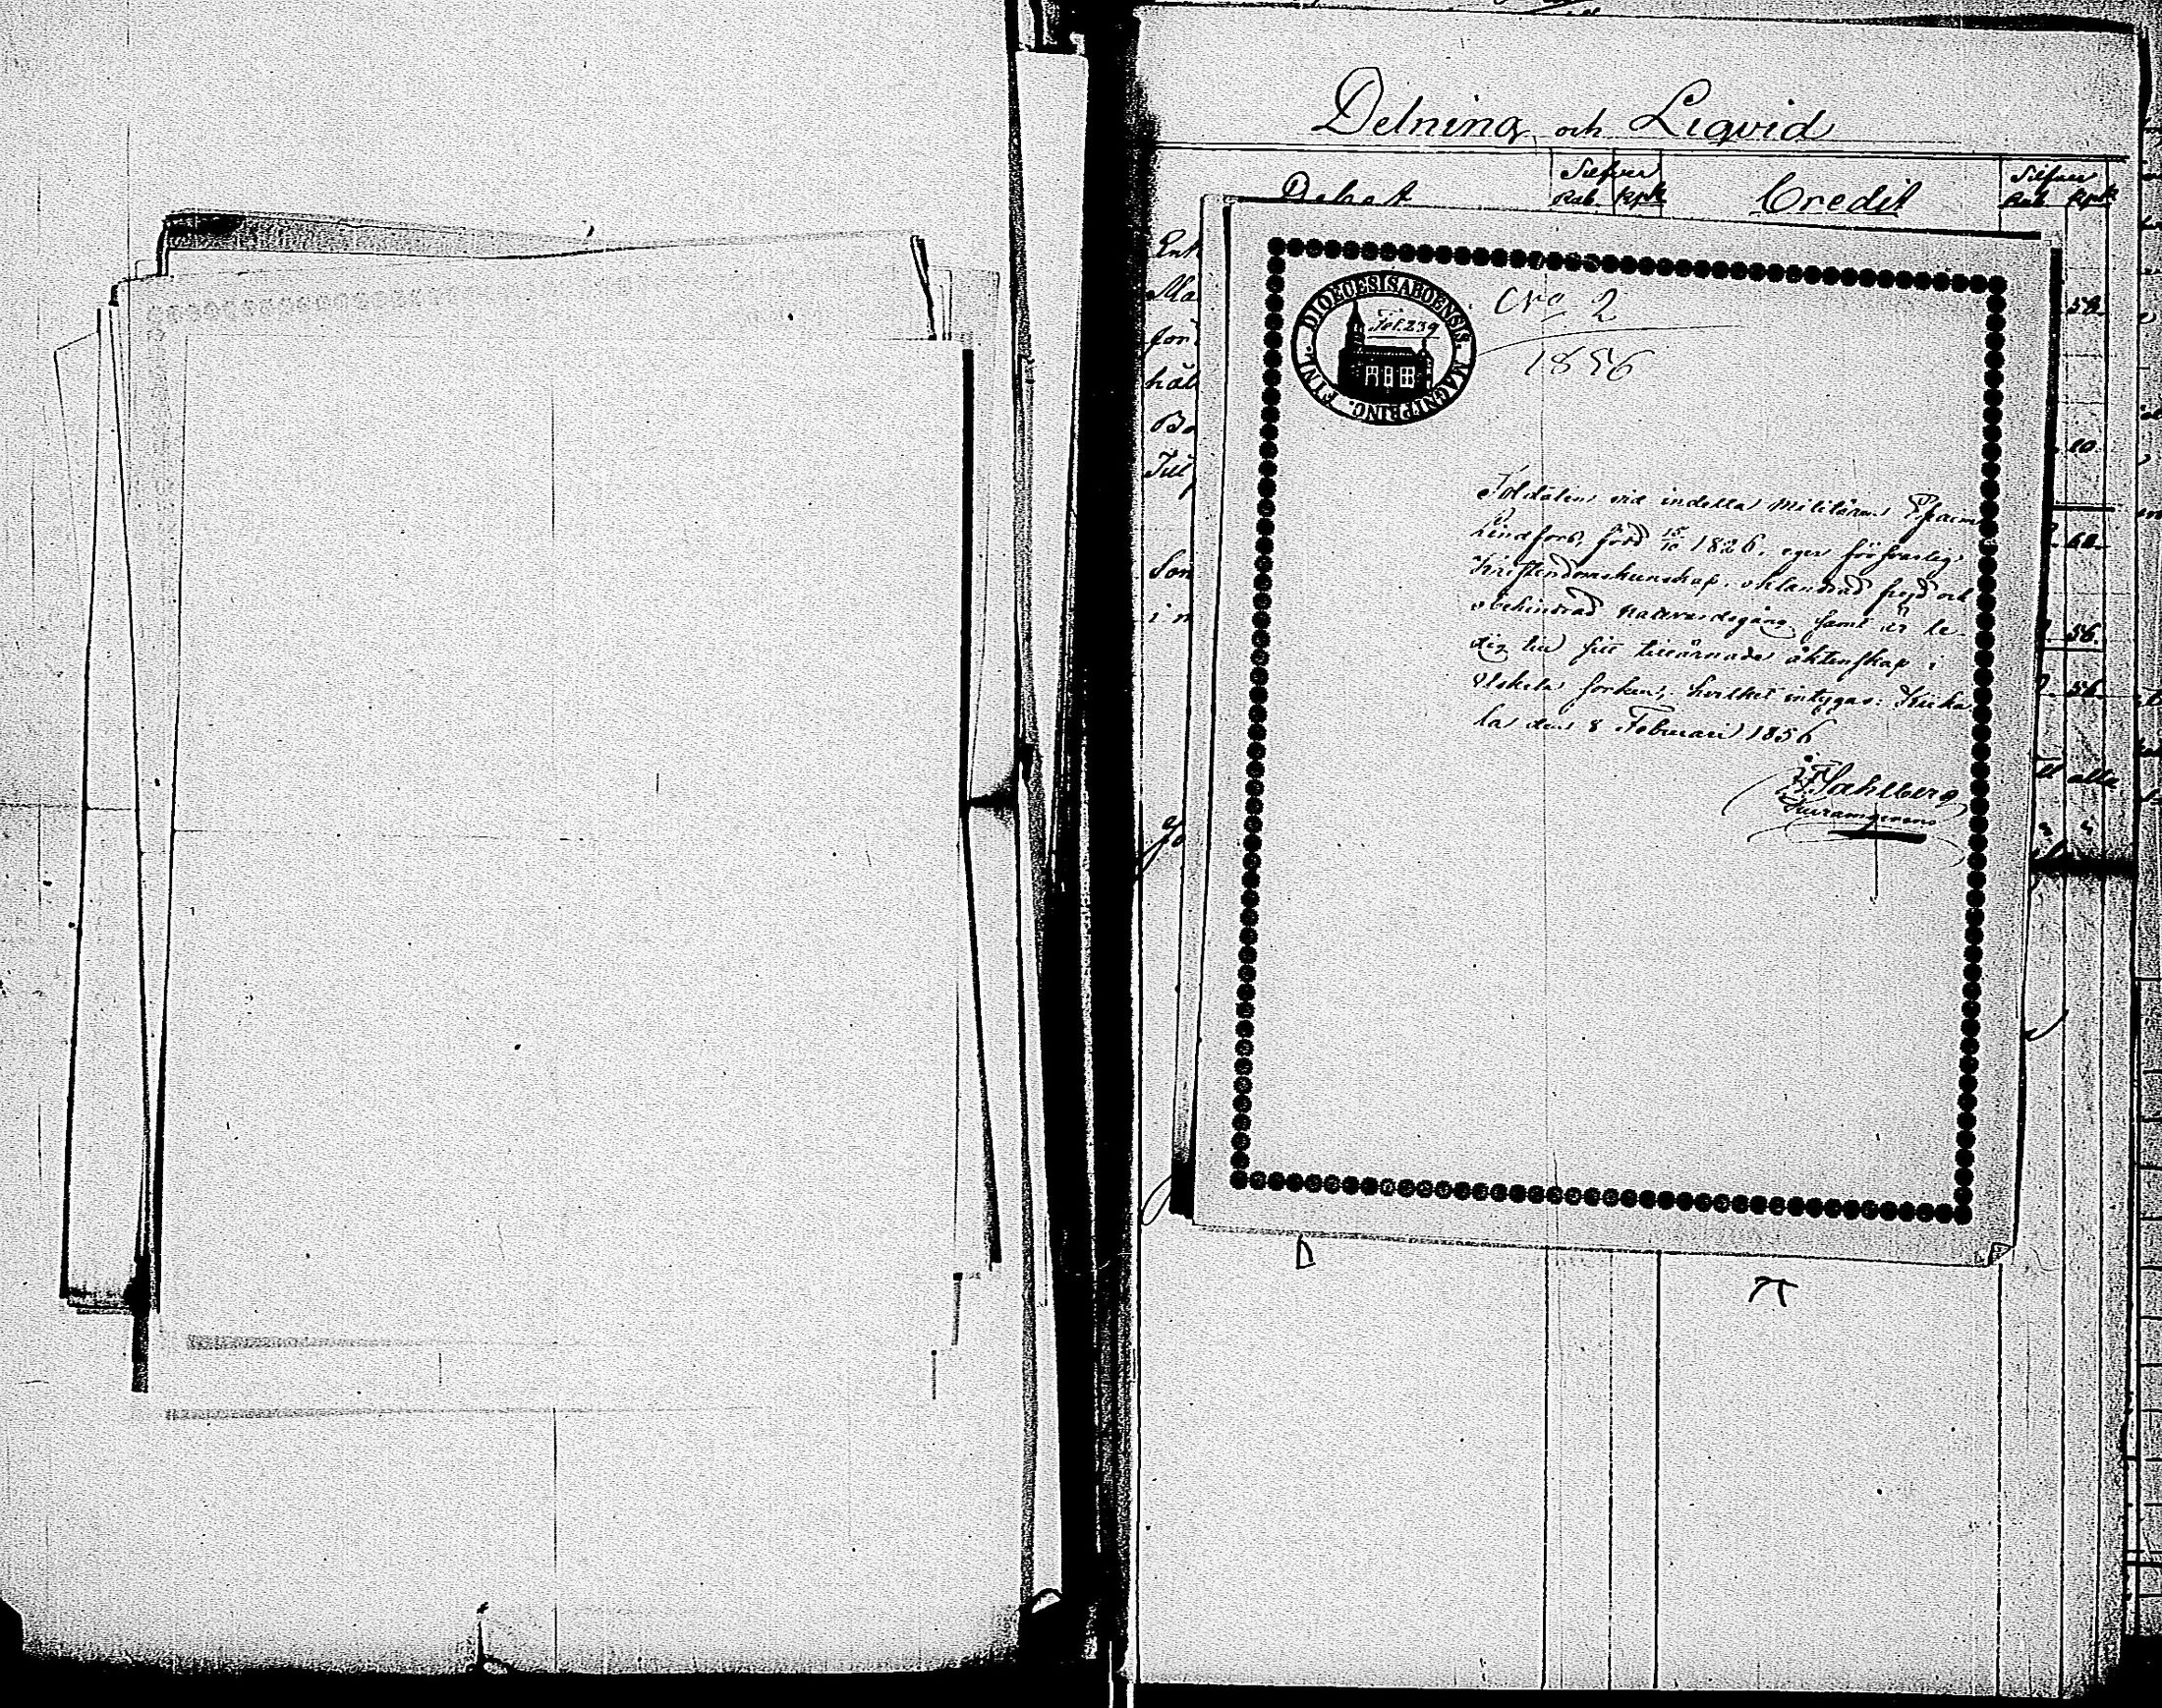 Delning och Liqvid
Debet
Silfver
Rub. Kpk
Credit
Silfver
Rub. Kpk
DIOECESIS ABOENSIS. MAGNI PRINC. FINL.
Fol. 239
No 2
1856
Soldaten vid indelta Militären Efraim
Lindfors, född 15/10 1826, eger försvarlig
Kristendomskunskap, oklandrad frejd och
obehindrad nattvardsgång samt är le-
dig till sitt tillärnade äktenskap i
Uskela socken; hvilket intygas. Kiika
la den 8 Februari 1856
Sahlberg
58.
10.
60.
56.
56.